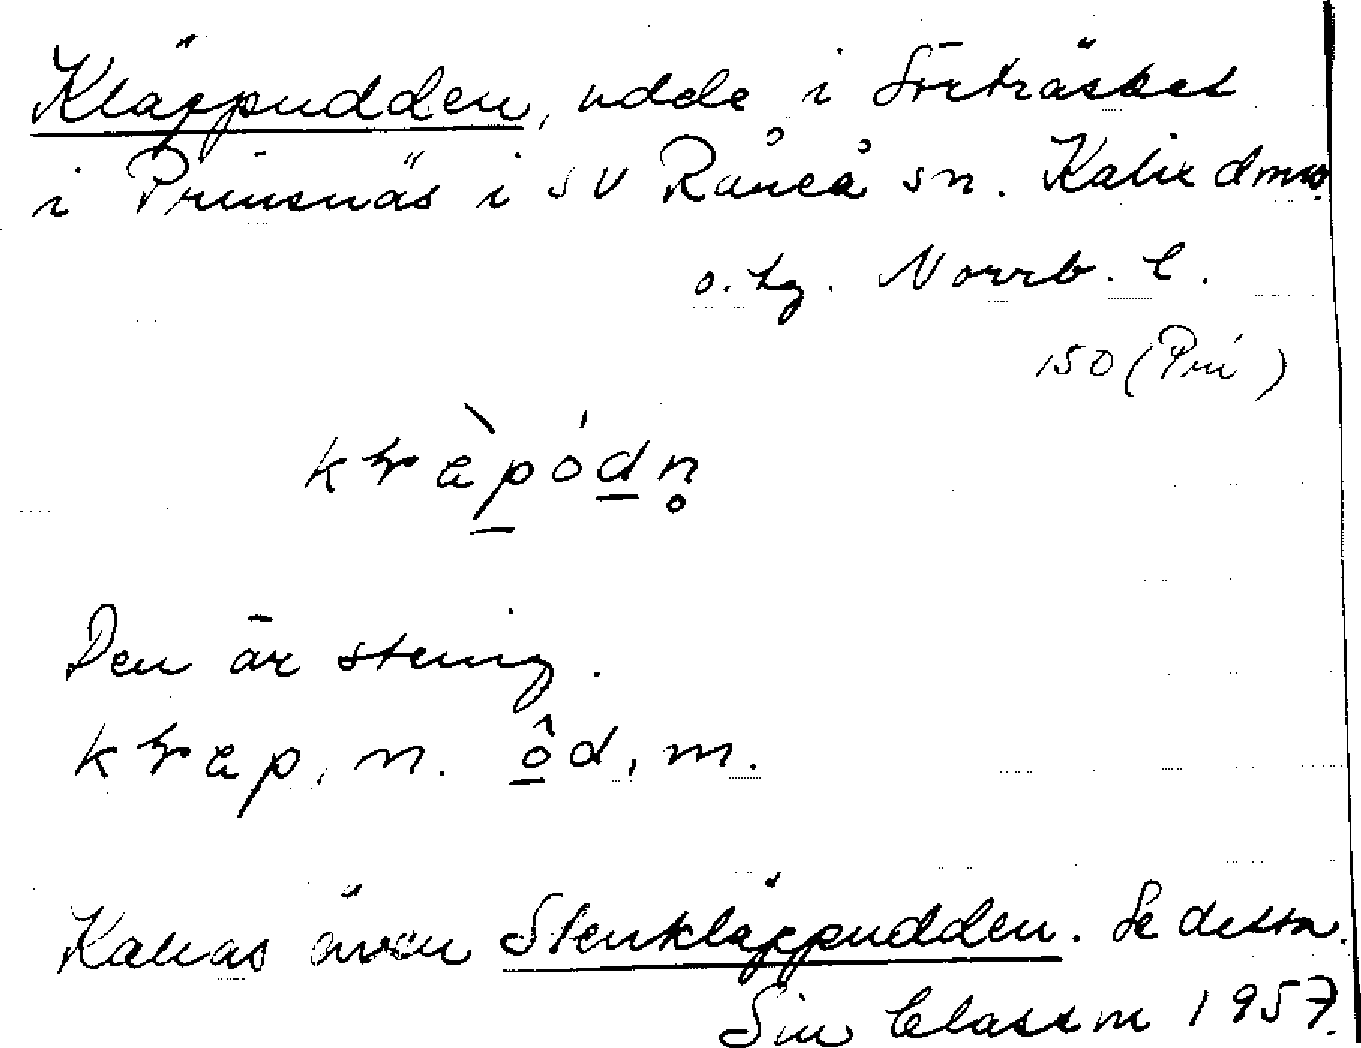 Kläppudden, udde i Sörträsket
i Prinsnäs i SV Råneå sn. Kalix dmso.
o. hg. Norrb. l.
150 (Pri)
Den är stenig.
Kallas även Stenkläppudden. Se detta.
Siw Classon 1957.